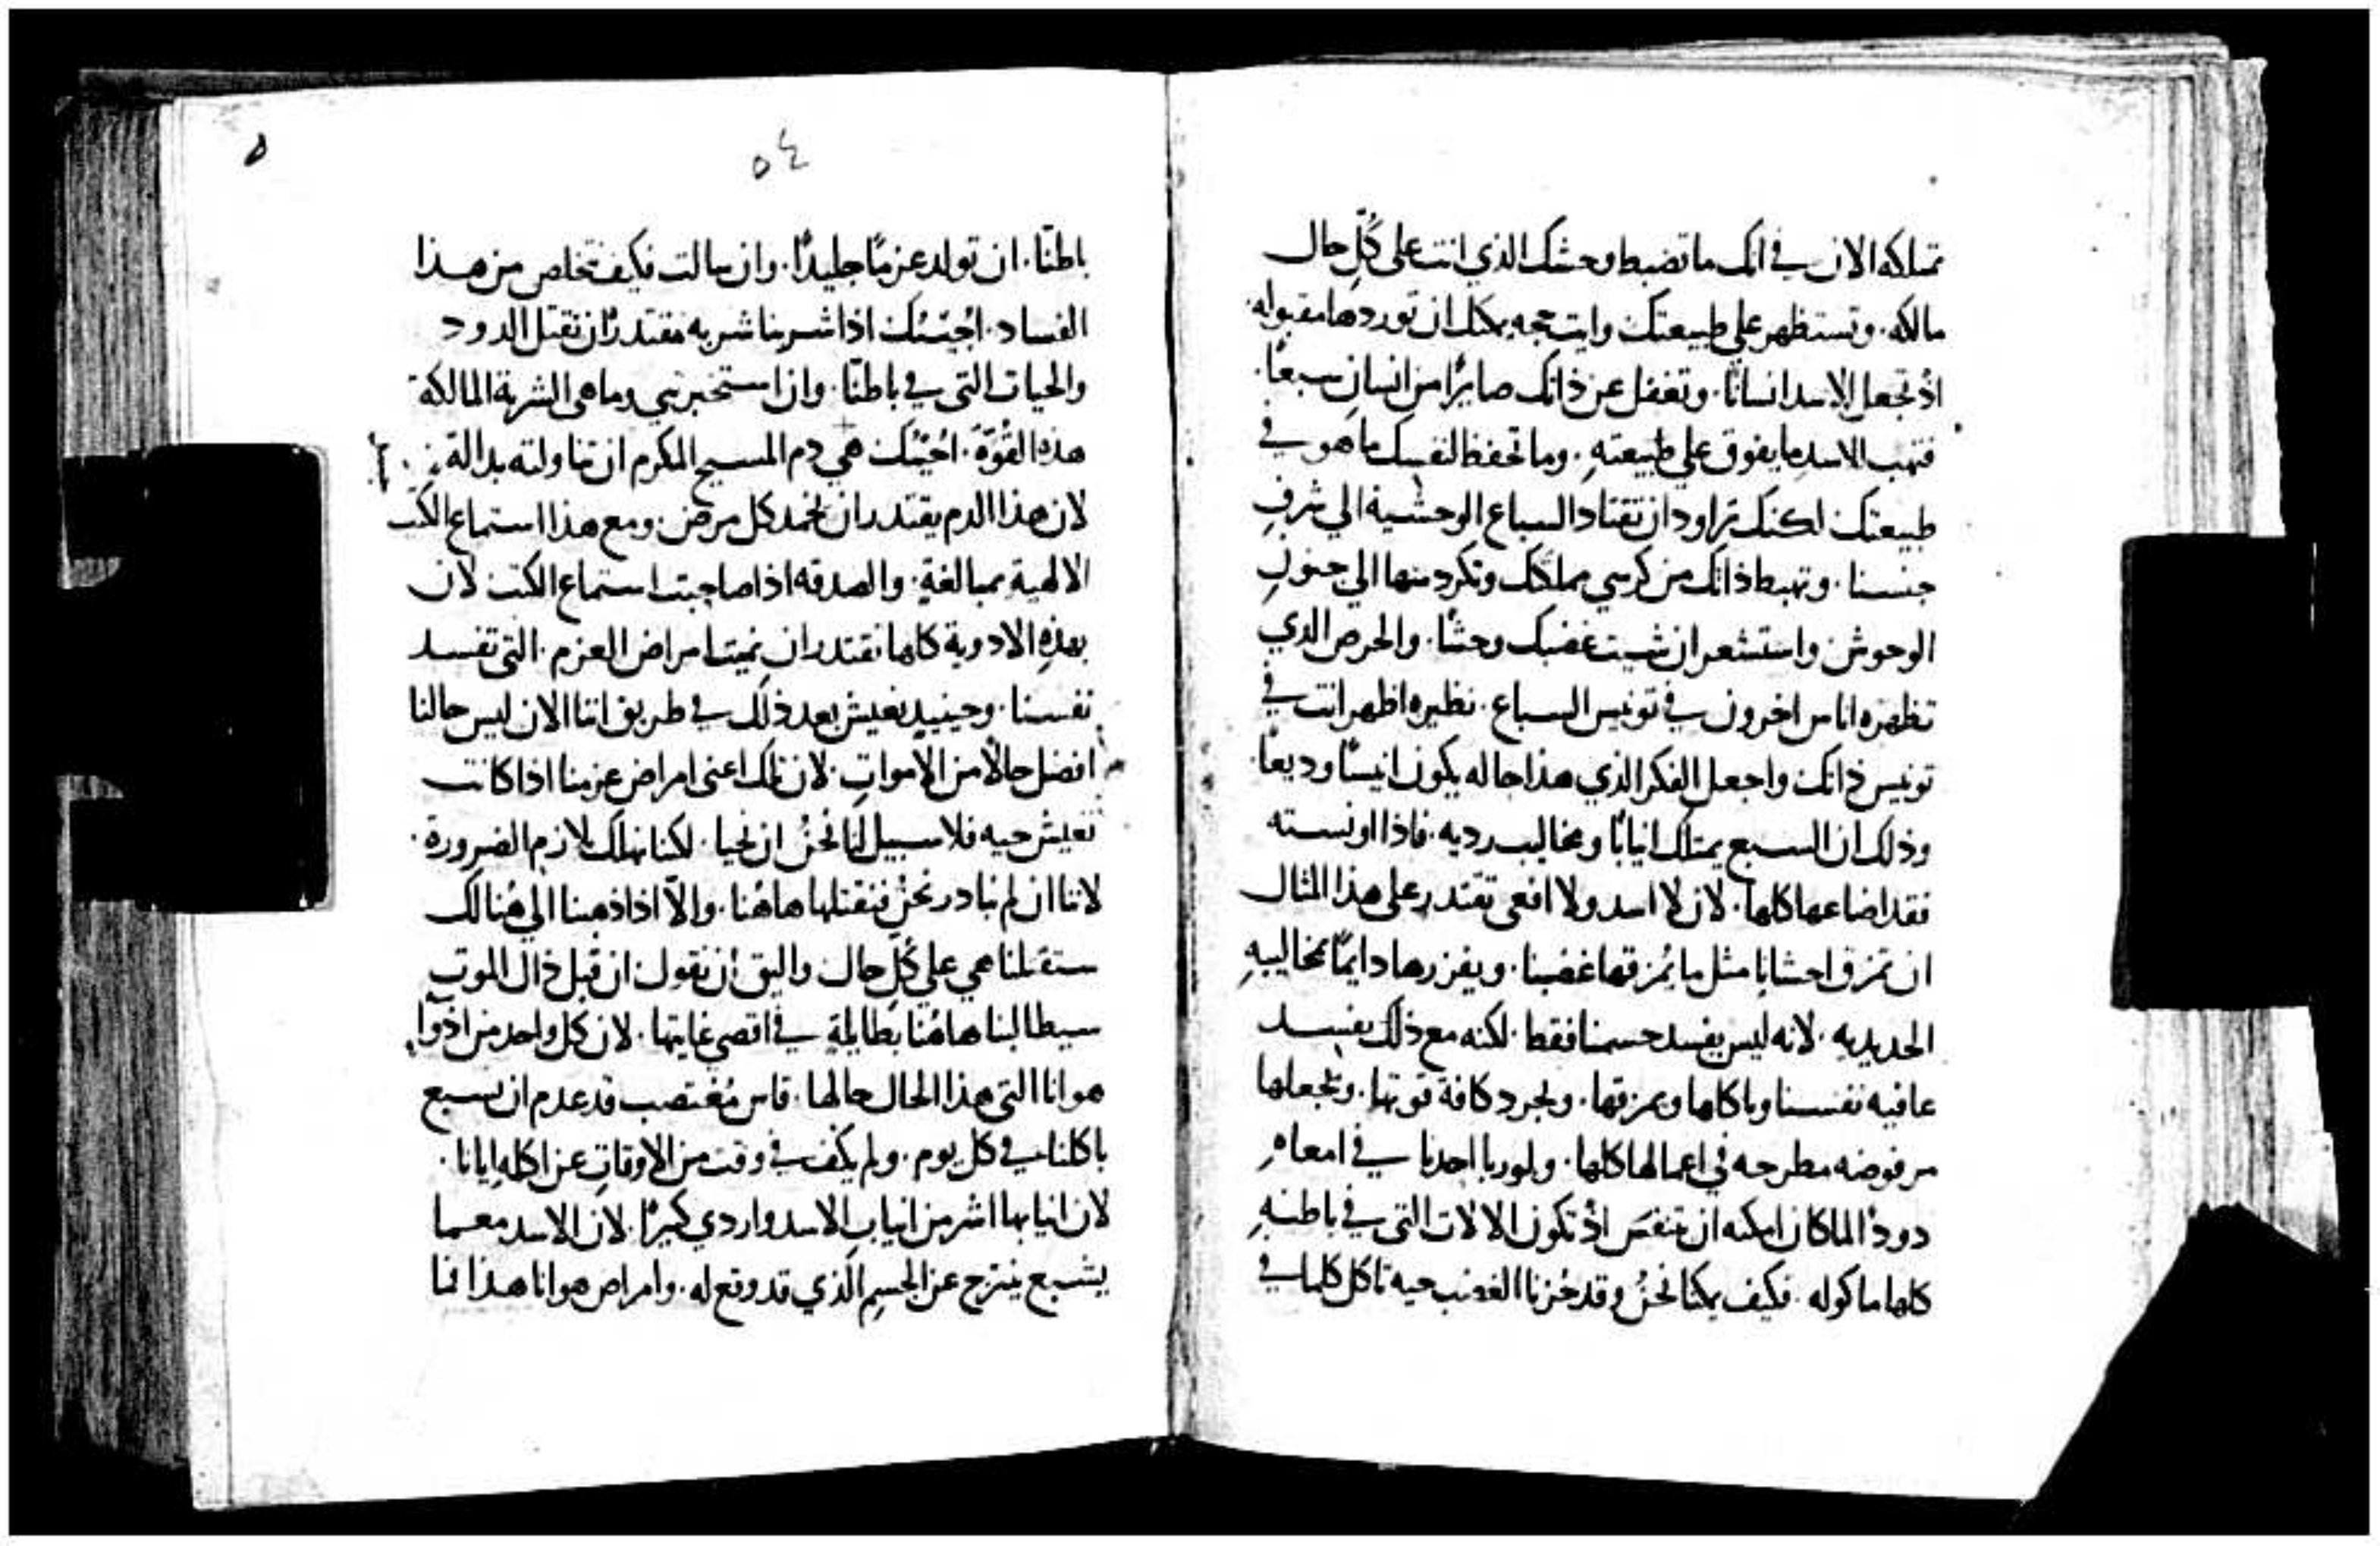 تملكه الان في انك ما تضبط وحشك الذي انت على كُلّ حال
مالكه. وتستظهر على طبيعتك وايت حجه يمكنك ان توردها مقبوله.
اذ تجعل الاسد انسانًا. وتغفل عن ذاتك صايرًا من انسانٍ سبعًا.
فتهب الاسد ما يفوق على طبيعتهِ. وما تحفظ لنفسك ما هو في
طبيعتك لكنك تراود ان تقتاد السباع الوحشية الي شرفِ
جنسنا. وتهبط ذاتك من كرسي مملكتك وتكردمنها الي جنونِ
الوحوش واستشعر ان شيت غضبك وحشًا. والحرص الذي
تظهره اناس اخرون في تونيس السباع. نظيره اظهر انت في
تونيس ذاتك واجعل الفكر الذي هذا حاله يكون انيسًا وديعًا.
وذلك ان السبع يمتلك انيابًا ومخاليب رديه. فاذا اونسته
فقد اضاعها كلها. لان لا اسد ولا افعى تقتدر على هذا المثال
ان تمزق احشانا مثل ما يُمزقها غضبنا. ويفزرها دايمًا بمخاليبهِ
الحديديه. لانه ليس يفسد جسمنا فقط. لكنه مع ذلك يفسد
عافيه نفسنا وياكلها ويمزقها. ويجرد كافة قوتها. ويجعلها
مرفوضه مطرحه في اعمالها كلها. ولو ربا احدنا في امعاهِ
دودًا لما كان امكنه ان يتنفسَ اذ تكون الالات التي في باطنهِ
كلها ماكوله. فكيف يمكنا نحنُ وقد حُزنا الغضب حيه تاكل كلما في
٥٤
باطنّا. ان تولد عزمًا جليدًا. وان سالت فكيف نتخلص من هذا
الفساد. اجُبْتُك اذا شربنا شربه مقتدرًا ان تقتل الدود
والحيات التي في باطنّا. وان استخبرتني وما هي الشربة المالكة
هذه القُوّةَ. اجُبْتُك هي دم المسيح المكرم ان تناولته بدالةٍ
لان هذا الدم يقتدر ان يخمد كل مرض. ومع هذا استماع الكتب
الالهية بمبالغةٍ. والصدقه اذا صاحبت استماع الكتب لان
بهذهِ الادوية كلها نقتدر ان نميت امراض العزم. التي تفسد
نفسنا. وحينيدٍ نعيش بعد ذلك في طريق اننا الان ليس حالنا
افضل حالاً من الامواتِ. لان تلك اعني امراض عزمنا اذا كانت
تعيش حيه فلا سبيل لنا نحنُ ان نحيا. لكنا نهلك لازم الضرورة.
لاننا ان لم نبادر نحن فنقتلها هاهُنا. والاّ اذا ذهبنا الي هُنالك
ستقتلنا هي على كُلّ حال واليق ان نقول ان قبل ذاك الموت
سيطالبنا هاهُنا بُطايلةٍ في اقصي غايتها. لان كل واحد من ادوآ
هوانا التي هذا الحال حالها. قاس مُغتصب قد عدم ان يسبع
ياكلنا في كل يوم. ولم يكف في وقت من الاوقاتِ عن اكله ايانا.
لان انيابها اشر من انياب الاسد واردي كثيرًا. لان الاسد معما
يشبع ينترح عن الجسمِ الذي قد وقع له. وامراض هوانا هذا فما